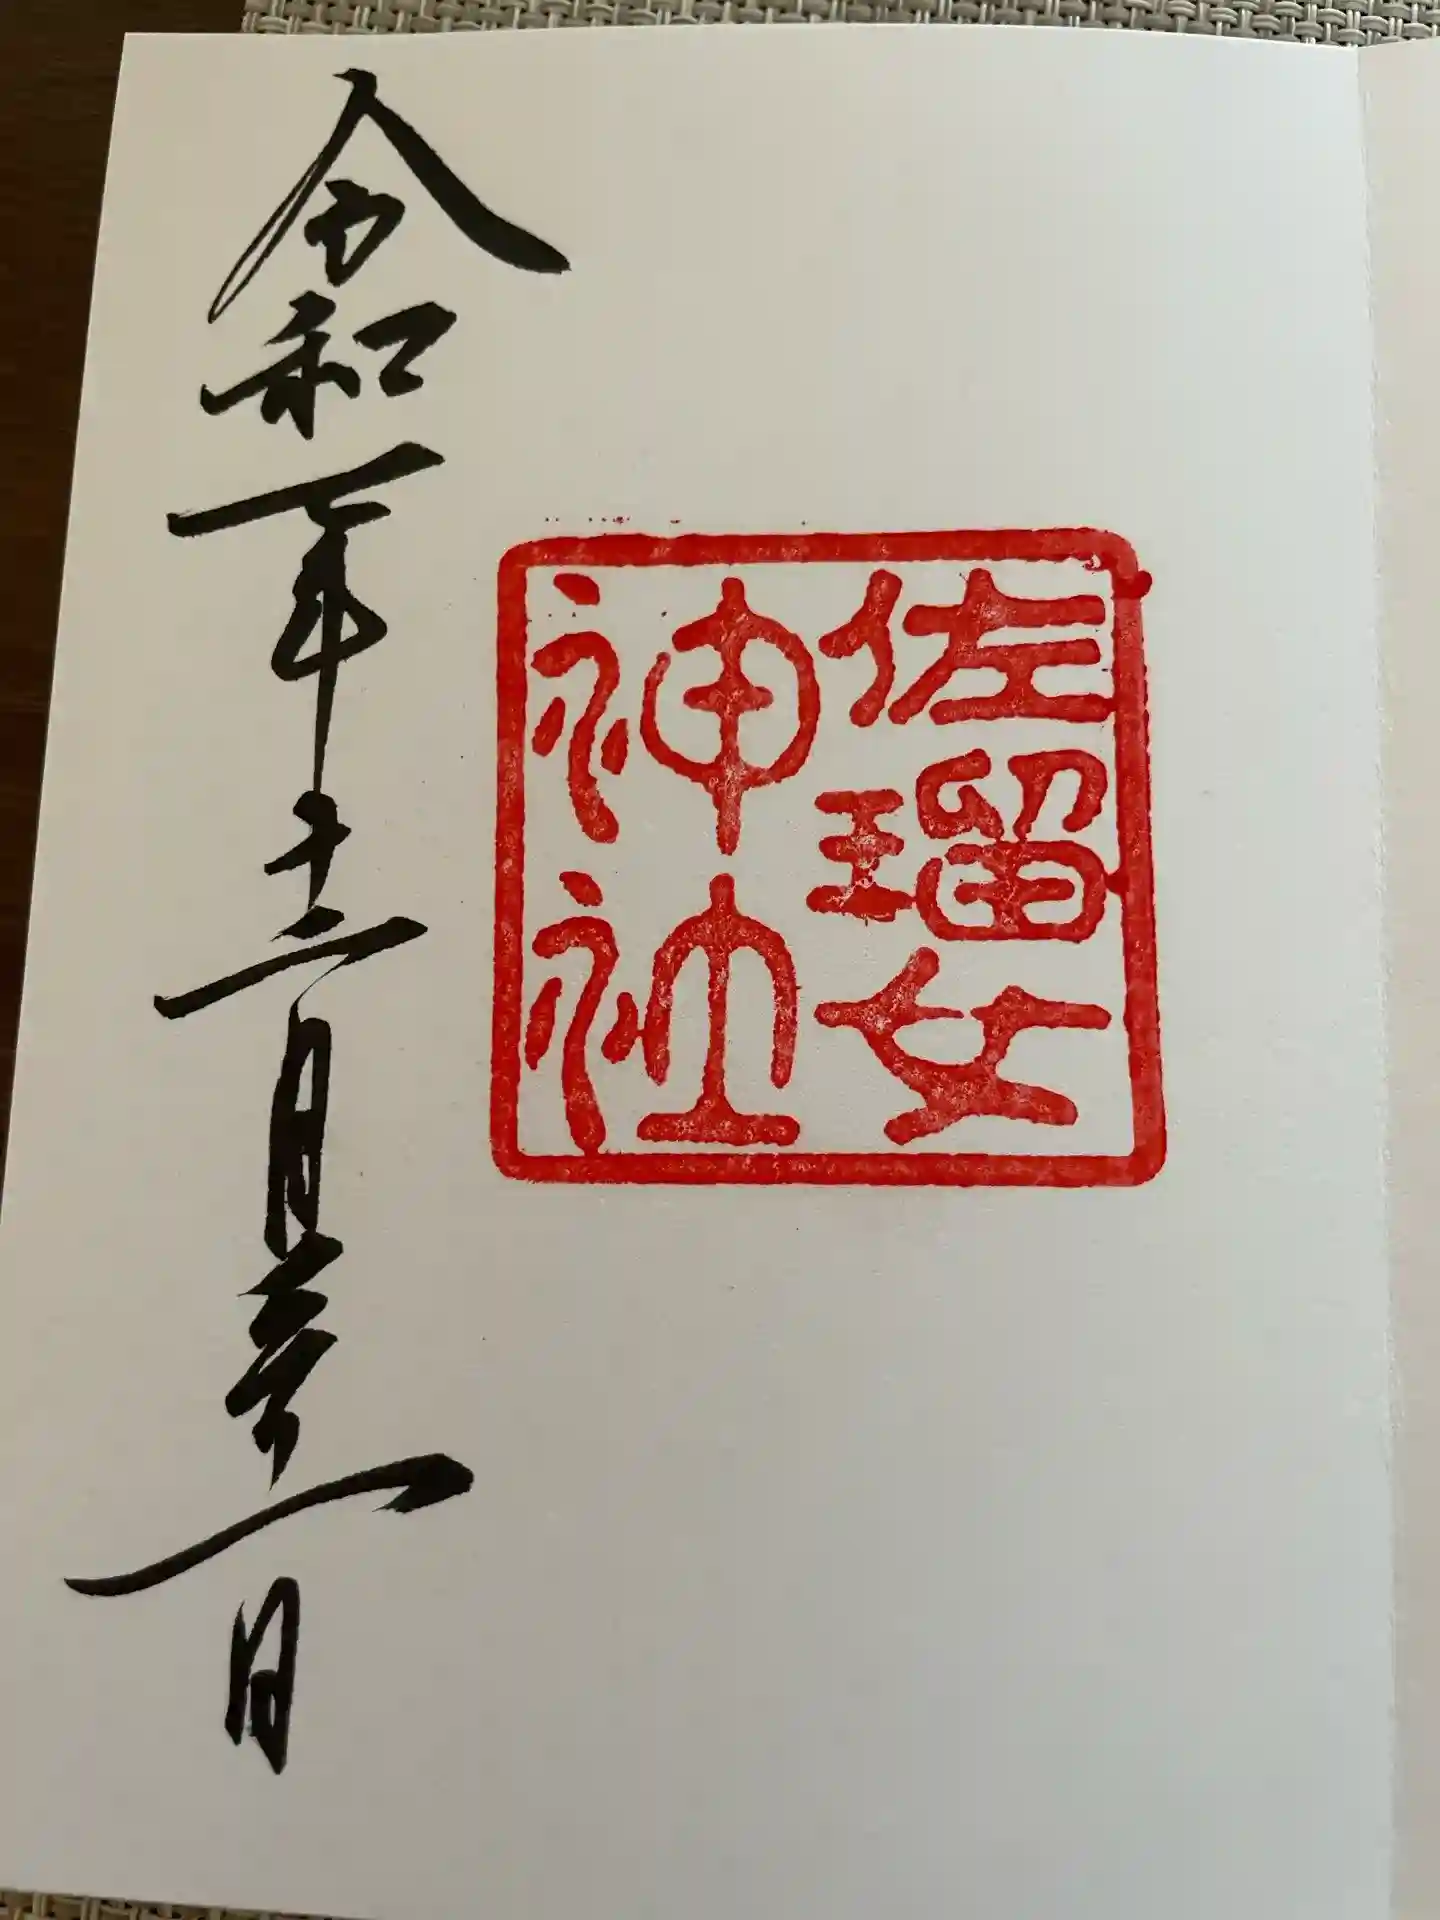 佐瑠女
神社
令和年十二月十一日